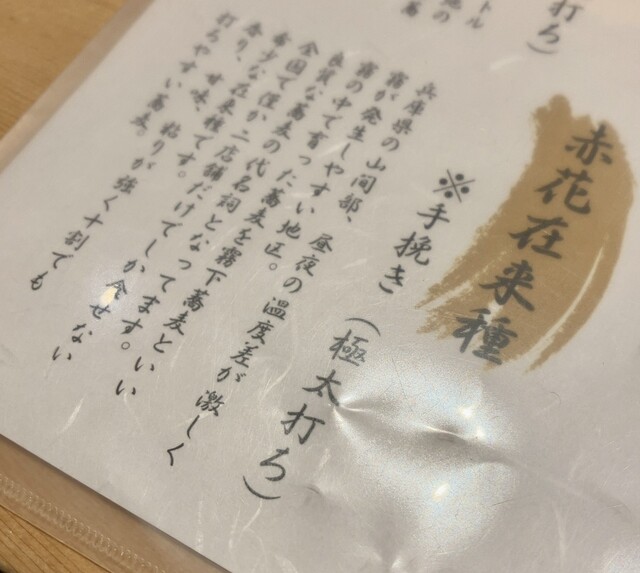 打ち)
トル
地の
赤花在来種
※手挽き (極太打ち)
兵庫県の山間部、昼夜の温度差が激しく
霧が発生しやすい地区。
霧の中で育った蕎麦を霧下蕎麦といい
良質な蕎麦の代名詞となってます。
全国で僅か二店舗だけでしか食せない
希少な在来種です。
香り、甘味、粘りが強く十割でも
打ちやすい蕎麦。